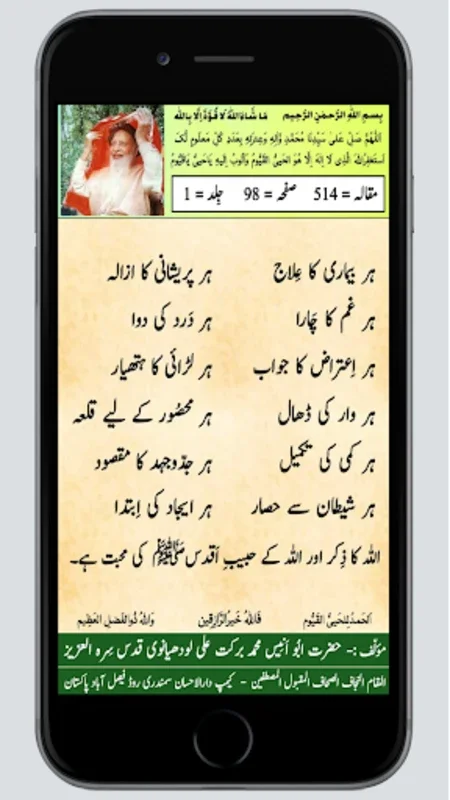 بِسمِ اللّٰهِ الرَّحمٰنِ الرَّحِيمِ    مَا شَاءَاللّٰهُ لَا قُوَّةَ اِلَّا بِاللّٰهِ
اَللّٰهُمَّ صَلِّ عَلٰى سَيِّدِنَا مُحَمَّدٍ وَّاٰلِهٖ وَعِترَتِهٖ بِعَدَدِ كُلِّ مَعلُومٍ لَّكَ
اَستَغفِرُاللّٰهَ الَّذِى لَا اِلٰهَ اِلَّا هُوَ الحَىُّ القَيُّومُ وَاَتُوبُ اِلَيهِ يَاحَىُّ يَاقَيُّومُ
مقالہ = 514    صفحہ = 98    جِلد = 1
ہر بیماری کا عِلاج    ہر پریشانی کا ازالہ
ہر غم کا چَارا    ہر دَرد کی دوا
ہر اِعتراض کا جواب    ہر لڑائی کا ہتھیار
ہر وار کی ڈھال    ہر محصُور کے لیے قلعہ
ہر کمی کی تکمیل    ہر جدّوجہد کا مقصود
ہر شیطان سے حصار    ہر ایجاد کی اِبتدا
اللہ کا ذِکر اور اللہ کے حبیبِ اَقدس ﷺ کی محبت ہے۔
اَلحَمدُ لِلحَىِّ القَيُّومِ    فَاللّٰهُ خَيرُالرّٰزِقِينَ    وَاللّٰهُ ذُوالفَضلِ العَظِيمِ
مؤلّف :- حضرت ابُو اَنیس محمد برکت علی لودھیانوی قدس سِرہ العزیز
المقام النجاف الصحاف المقبول المصطفین - کیمپ دارالاحسان سمندری روڈ فیصل آباد پاکستان